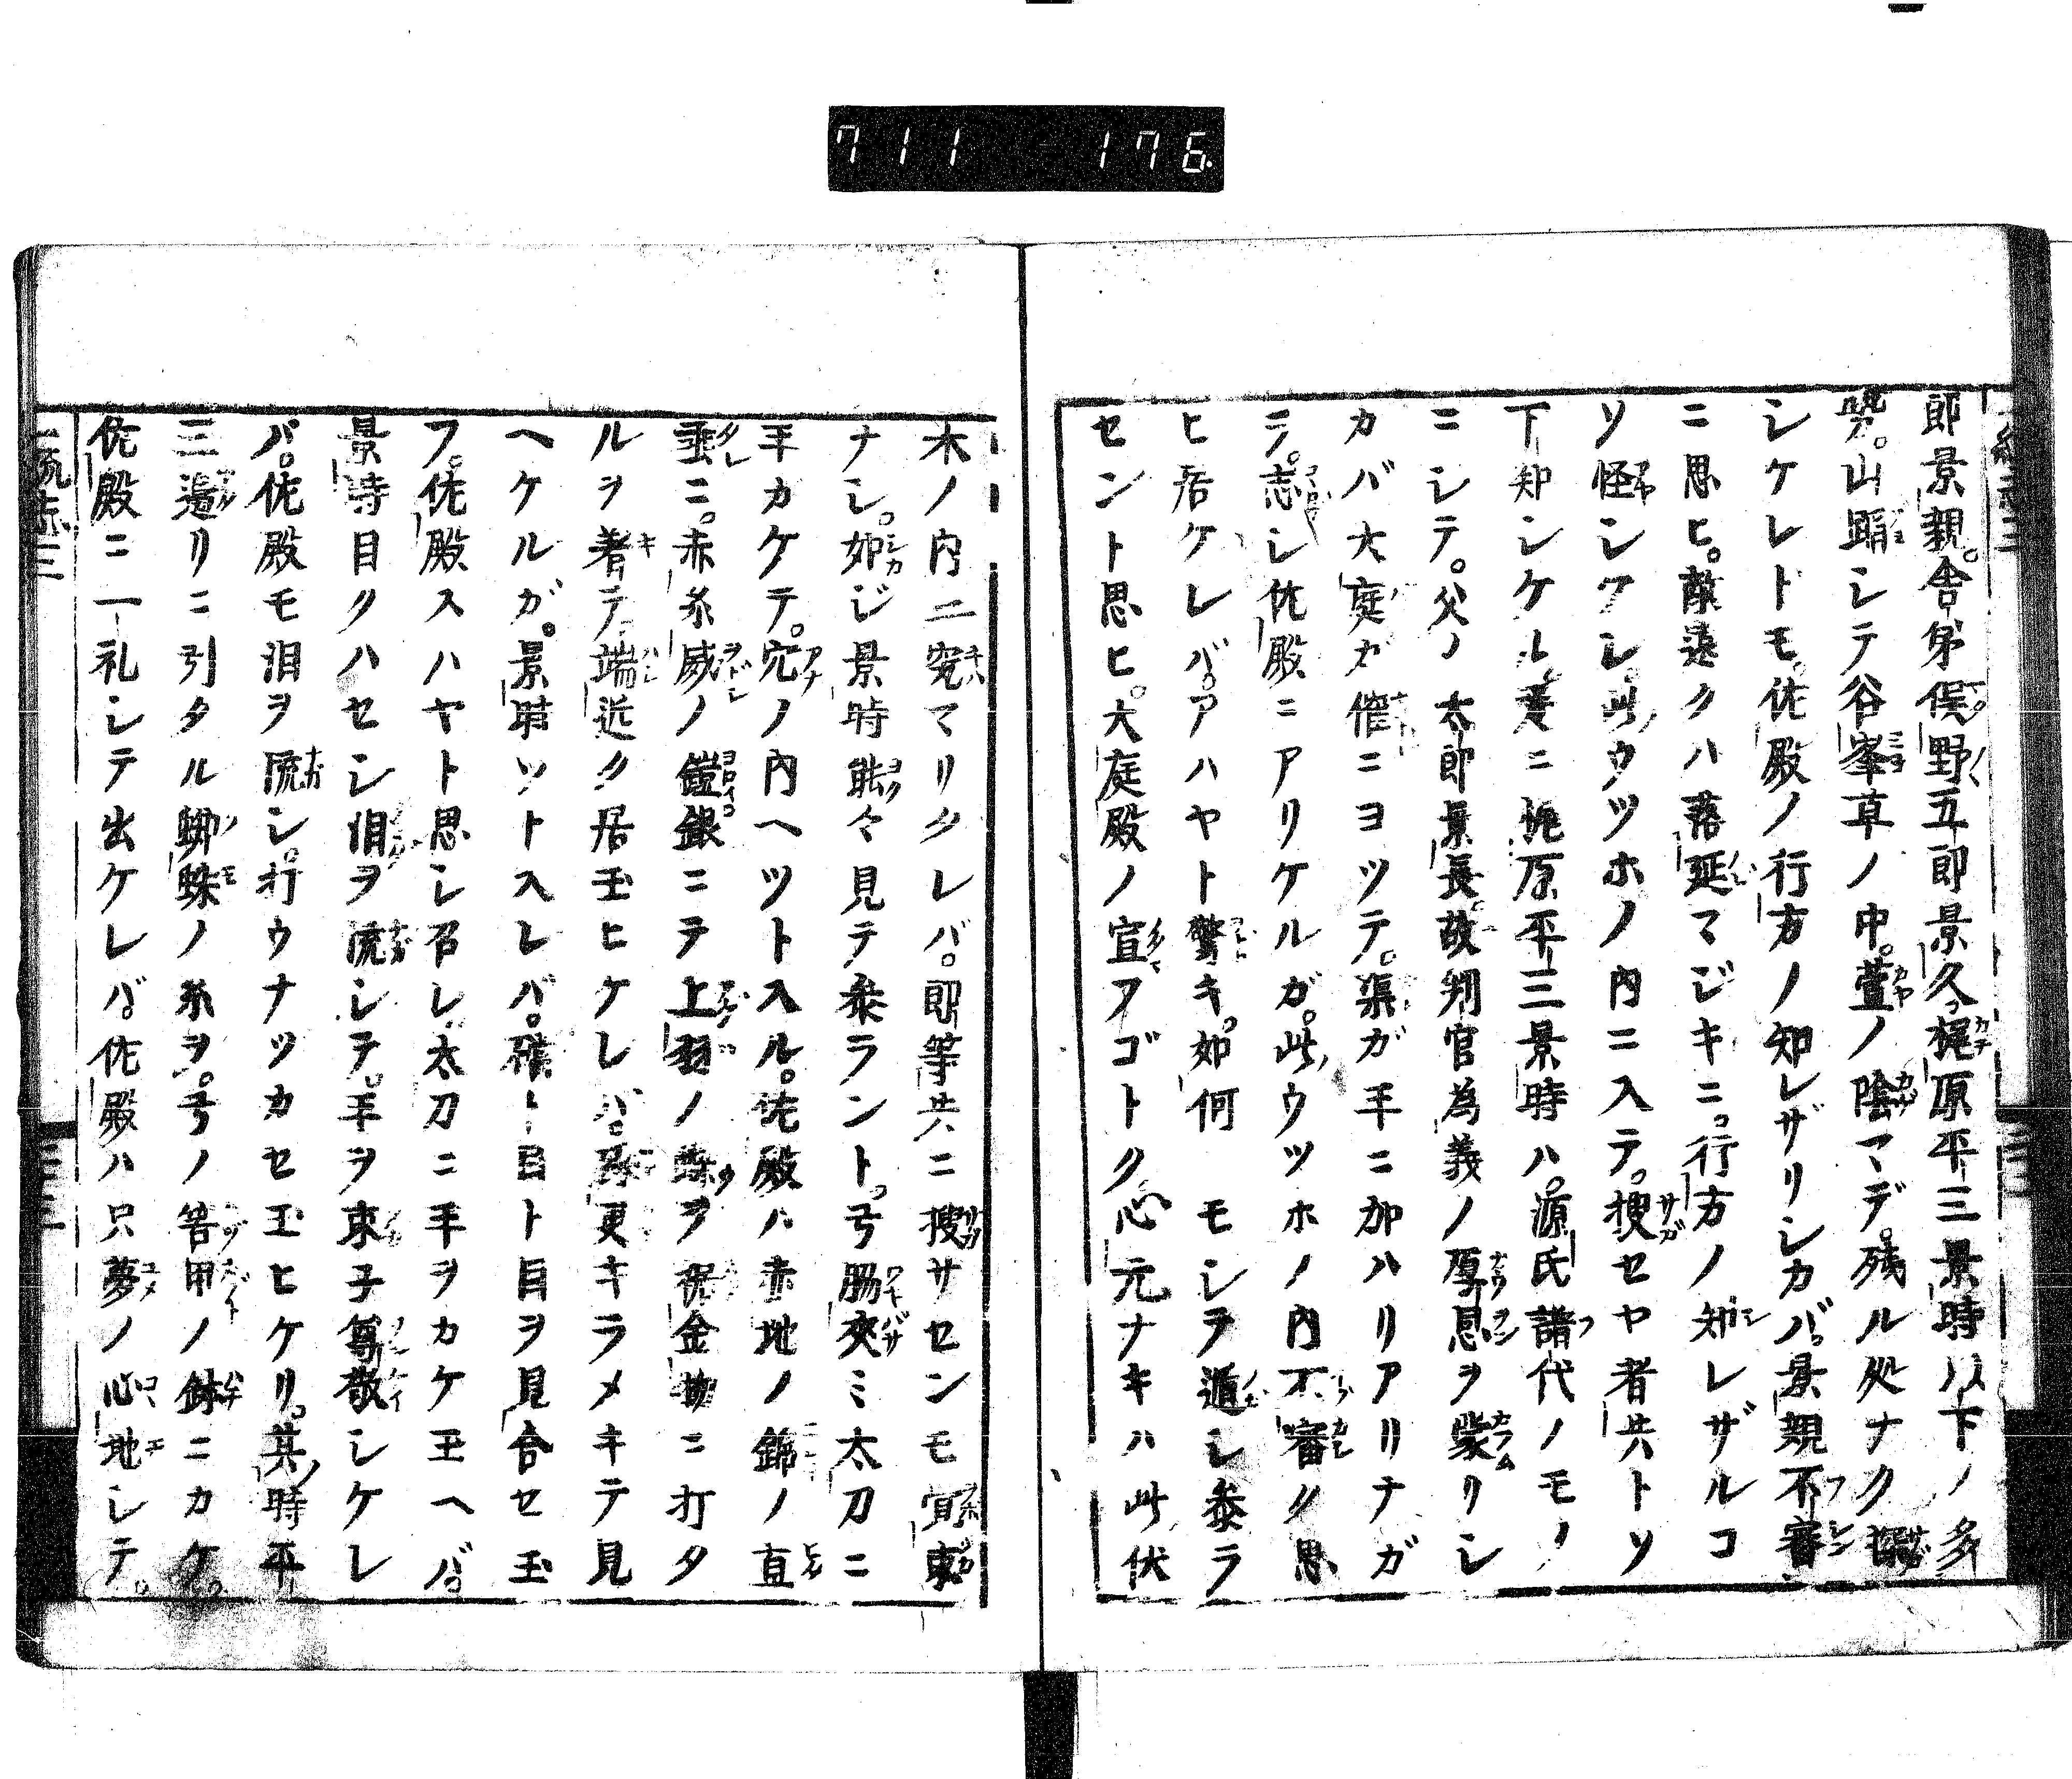 711 176
郎景親。舎弟俣野五郎景久。梶原平三景時以下ノ多
勢。山踊シテ谷峯草ノ中。萱ノ陰マデ。残ル処ナク探
シケレトモ。佐殿ノ行方ノ知レザリシカバ。景親不審
ニ思ヒ。敵遠クハ落延マジキニ。行方ノ知レザルコ
ソ怪シケレ。此ウツホノ内ニ入テ。捜セヤ者共トソ
下知シケル。爰ニ梶原平三景時ハ。源氏譜代ノモノ
ニシテ。父ノ太郎景長。故判官為義ノ厚恩ヲ蒙リシ
カバ大庭ガ催ニヨツテ。渠ガ手ニ加ハリアリナガ
ラ。志シ佐殿ニアリケルガ。此ウツホノ内不審ク思
ヒ居ケレバ。アハヤト驚キ。如何モシテ遁シ参ラ
セント思ヒ。大庭殿ノ宣フゴトク心元ナキハ此伏
木ノ内ニ究マリクレバ。郎等共ニ捜サセンモ
ナシ。如ジ景時能々見テ参ラント。弓脇夾ミ太刀ニ
手カケテ。穴ノ内ヘツト入ル。佐殿ハ赤地ノ錦ノ直
垂ニ。赤糸威ノ鎧銀ニテ上羽ノ蝶ヲ
ルヲ着テ。端近ク居玉ヒケレバ。更キラメキテ見
ヘケルガ。景時ツト入レバ。礑ト目ト目ヲ見合セ玉
フ。佐殿スハヤト思シ召レ太刀ニ手ヲカケ玉ヘバ。
景時目クハセシ泪ヲ流シテ。手ヲ束子尊敬シケレ
バ。佐殿モ泪ヲ流シ。打ウナツカセ玉ヒケリ。其時平
三邉リニ引タル蜘蛛ノ糸ヲ。弓ノ筈甲ノ鉢ニカケ。
佐殿ニ一礼シテ出ケレバ。佐殿ハ只夢ノ心地シテ。